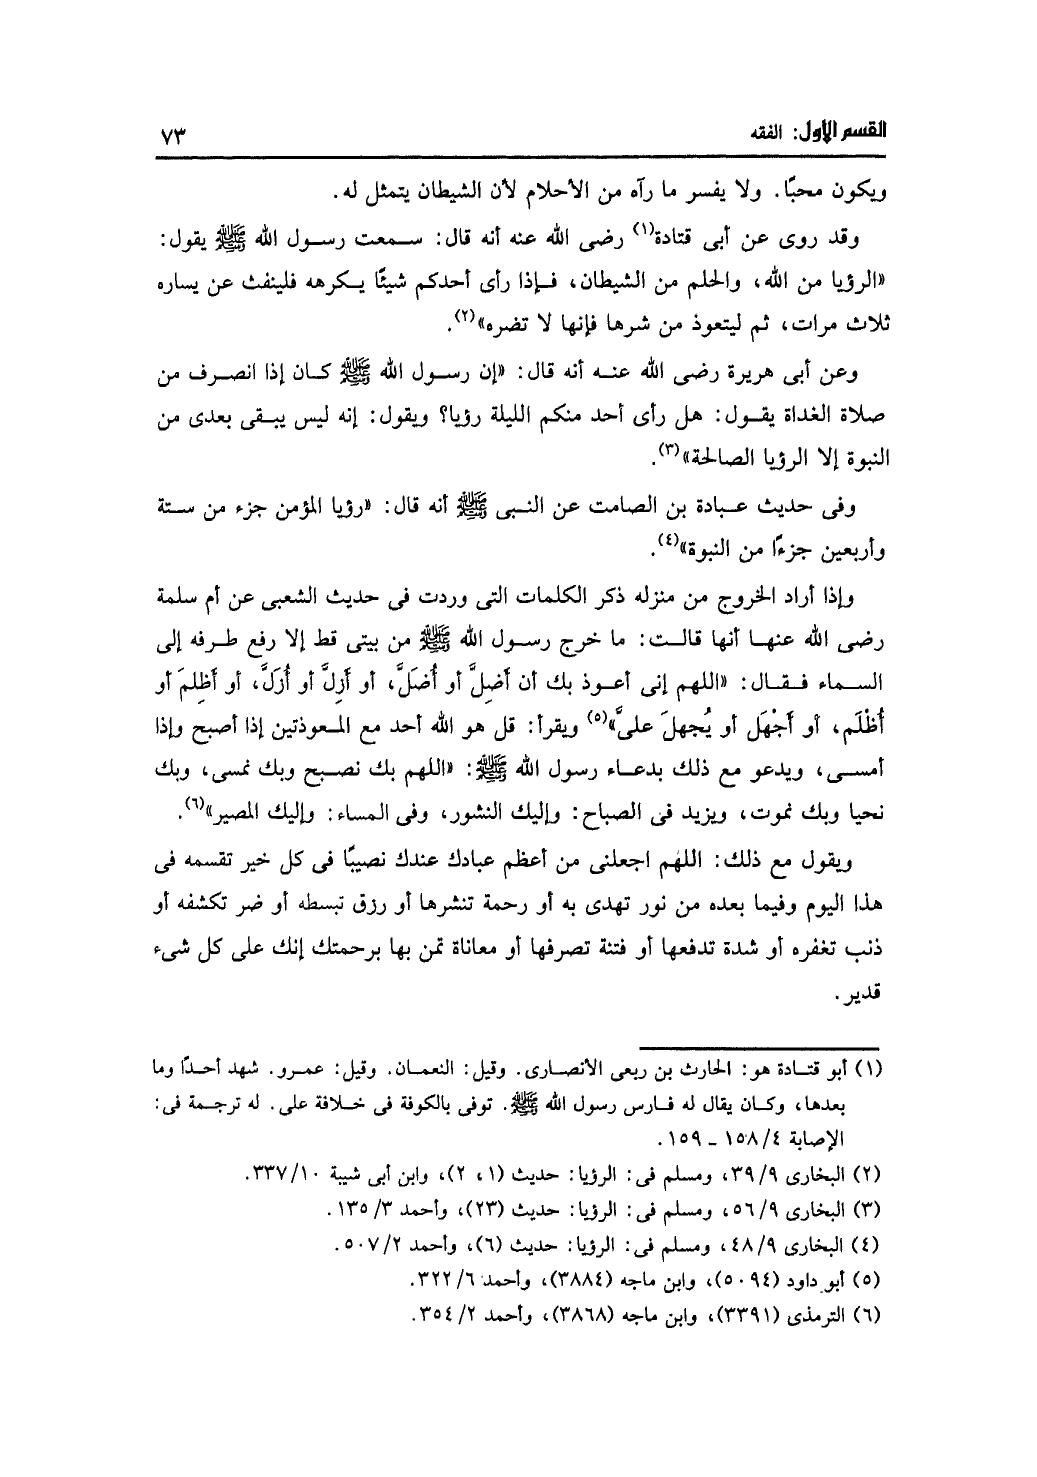 القسم الأول: الفقه
٧٣
ويكون محبًا. ولا يفسر ما رآه من الأحلام لأن الشيطان يتمثل له.
وقد روى عن أبى قتادة(١) رضى الله عنه أنه قال: سمعت رسول الله ﷺ يقول:
«الرؤيا من الله، والحلم من الشيطان، فإذا رأى أحدكم شيئًا يكرهه فلينفث عن يساره
ثلاث مرات، ثم ليتعوذ من شرها فإنها لا تضره»(٢).
وعن أبى هريرة رضى الله عنه أنه قال: «إن رسول الله ﷺ كان إذا انصرف من
صلاة الغداة يقول: هل رأى أحد منكم الليلة رؤيا؟ ويقول: إنه ليس يبقى بعدى من
النبوة إلا الرؤيا الصالحة»(٣).
وفى حديث عبادة بن الصامت عن النبى ﷺ أنه قال: «رؤيا المؤمن جزء من ستة
وأربعين جزءًا من النبوة»(٤).
وإذا أراد الخروج من منزله ذكر الكلمات التى وردت فى حديث الشعبى عن أم سلمة
رضى الله عنها أنها قالت: ما خرج رسول الله ﷺ من بيتى قط إلا رفع طرفه إلى
السماء فقال: «اللهم إنى أعوذ بك أن أَضِلَّ أو أُضَلَّ، أو أَزِلَّ أو أُزَلَّ، أو أَظلِمَ أو
أُظْلَم، أو أَجْهَل أو يُجهلَ علىَّ»(٥) ويقرأ: قل هو الله أحد مع المعوذتين إذا أصبح وإذا
أمسى، ويدعو مع ذلك بدعاء رسول الله ﷺ: «اللهم بك نصبح وبك نمسى، وبك
نحيا وبك نموت، ويزيد فى الصباح: وإليك النشور، وفى المساء: وإليك المصير»(٦).
ويقول مع ذلك: اللهم اجعلنى من أعظم عبادك عندك نصيبًا فى كل خير تقسمه فى
هذا اليوم وفيما بعده من نور تهدى به أو رحمة تنشرها أو رزق تبسطه أو ضر تكشفه أو
ذنب تغفره أو شدة تدفعها أو فتنة تصرفها أو معاناة تمن بها برحمتك إنك على كل شىء
قدير.
(١) أبو قتادة هو: الحارث بن ربعى الأنصارى. وقيل: النعمان. وقيل: عمرو. شهد أحدًا وما
بعدها، وكان يقال له فارس رسول الله ﷺ. توفى بالكوفة فى خلافة على. له ترجمة فى:
الإصابة ٤/ ١٥٨ - ١٥٩.
(٢) البخارى ٩/ ٣٩، ومسلم فى: الرؤيا: حديث (١، ٢)، وابن أبى شيبة ١٠/ ٣٣٧.
(٣) البخارى ٩/ ٥٦، ومسلم فى: الرؤيا: حديث (٢٣)، وأحمد ٣/ ١٣٥.
(٤) البخارى ٩/ ٤٨، ومسلم فى: الرؤيا: حديث (٦)، وأحمد ٢/ ٥٠٧.
(٥) أبو داود (٥٠٩٤)، وابن ماجه (٣٨٨٤)، وأحمد ٦/ ٣٢٢.
(٦) الترمذى (٣٣٩١)، وابن ماجه (٣٨٦٨)، وأحمد ٢/ ٣٥٤.